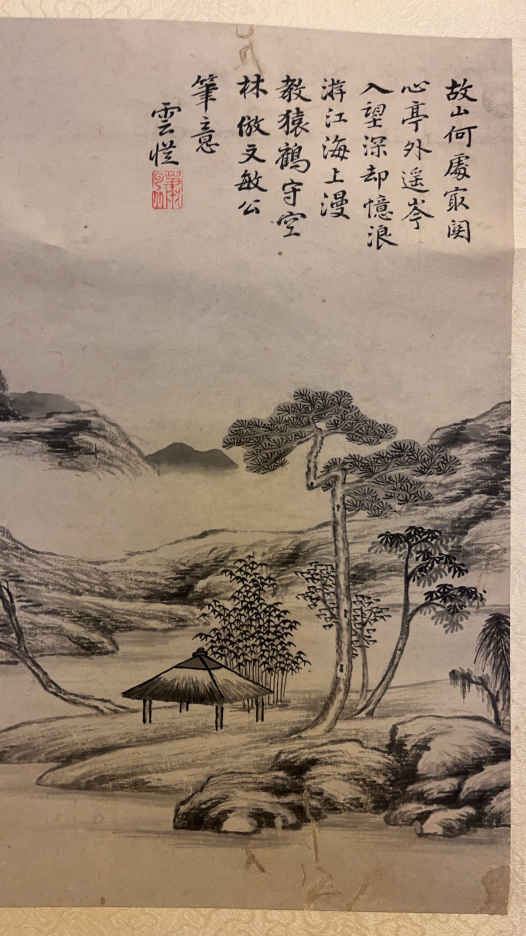 故山何處㝡関
心亭外遥岑
入望深却憶浪
游江海上漫
教猿鶴守空
林倣文敏公
筆意
雲